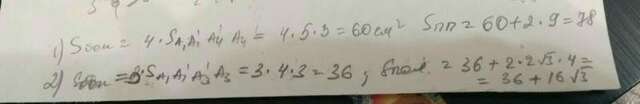 1) Sбок = 4 · S A₁A₁'A₄'A₄ = 4.5.3 = 60 см² Sпп = 60+2.9=78
2) Sбок = 3·S A₁A₁'A₃'A₃ = 3.4.3 = 36 ; Sпол = 36 + 2·2√3·4=
= 36 + 16√3